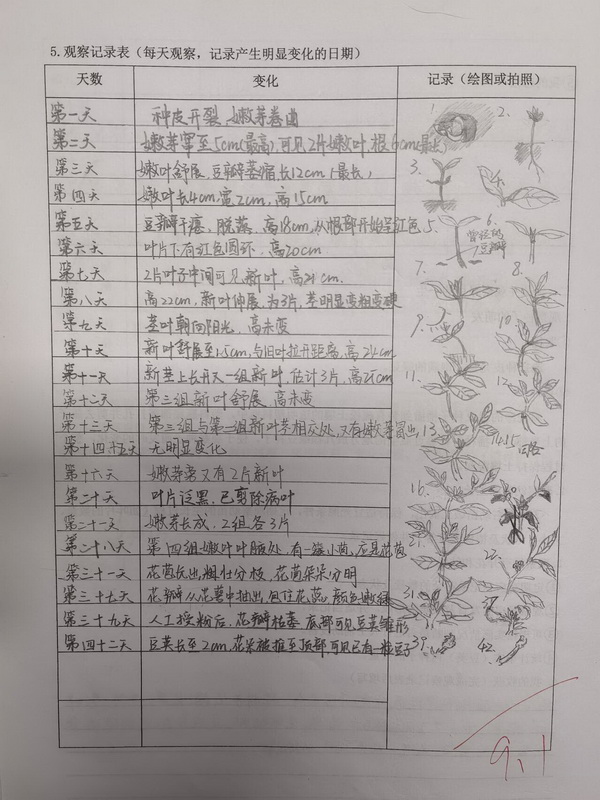 5.观察记录表（每天观察，记录产生明显变化的日期）
天数 变化 记录（绘图或拍照）
第一天 种皮开裂,嫩芽卷曲
第二天 嫩芽窜至5cm(最高),可见2片嫩叶,根6cm(最长)
第三天 嫩叶舒展,豆瓣萎缩,长12cm(最长)
第四天 嫩叶长4cm,宽2cm,高15cm
第五天 豆瓣干瘪,脱落,高18cm,从根部开始呈红色
第六天 叶片下有红色圆环,高20cm
第七天 2片叶子中间可见新叶,高21cm.
第八天 高22cm,新叶伸展,为3片,茎明显变粗变硬
第九天 茎叶朝向阳光,高未变
第十天 新叶舒展至1.5cm,与旧叶拉开距离,高24cm
第十一天 新茎上长开又一组新叶,估计3片,高25cm
第十二天 第三组新叶舒展,高未变
第十三天 第三组与第一组新叶茎相交处,又有嫩芽冒出
第十四十五天 无明显变化
第十六天 嫩芽旁又有2片新叶
第二十天 叶片泛黑,已剪除病叶
第二十一天 嫩芽长成,2组各3片
第二十八天 第四组嫩叶叶腋处,有一簇小茵,应是花苞
第三十一天 花茵抚出,粗仕分枝,花茵朵朵分明
第三十七天 花瓣从花萼中抽出,包住花蕊,颜色嫩绿
第三十九天 人工授粉后,花瓣枯萎,底部可见豆荚雏形
第四十二天 豆荚长至2cm,花朵被推至顶部,可见已有一粒豆子
1. 2.
3. 4.
5. 曾经的豆瓣 6.
7. 8.
9. 10.
11. 12.
13. 14.15
16.
21. 22.
31. 37.
39. 42.
9.1